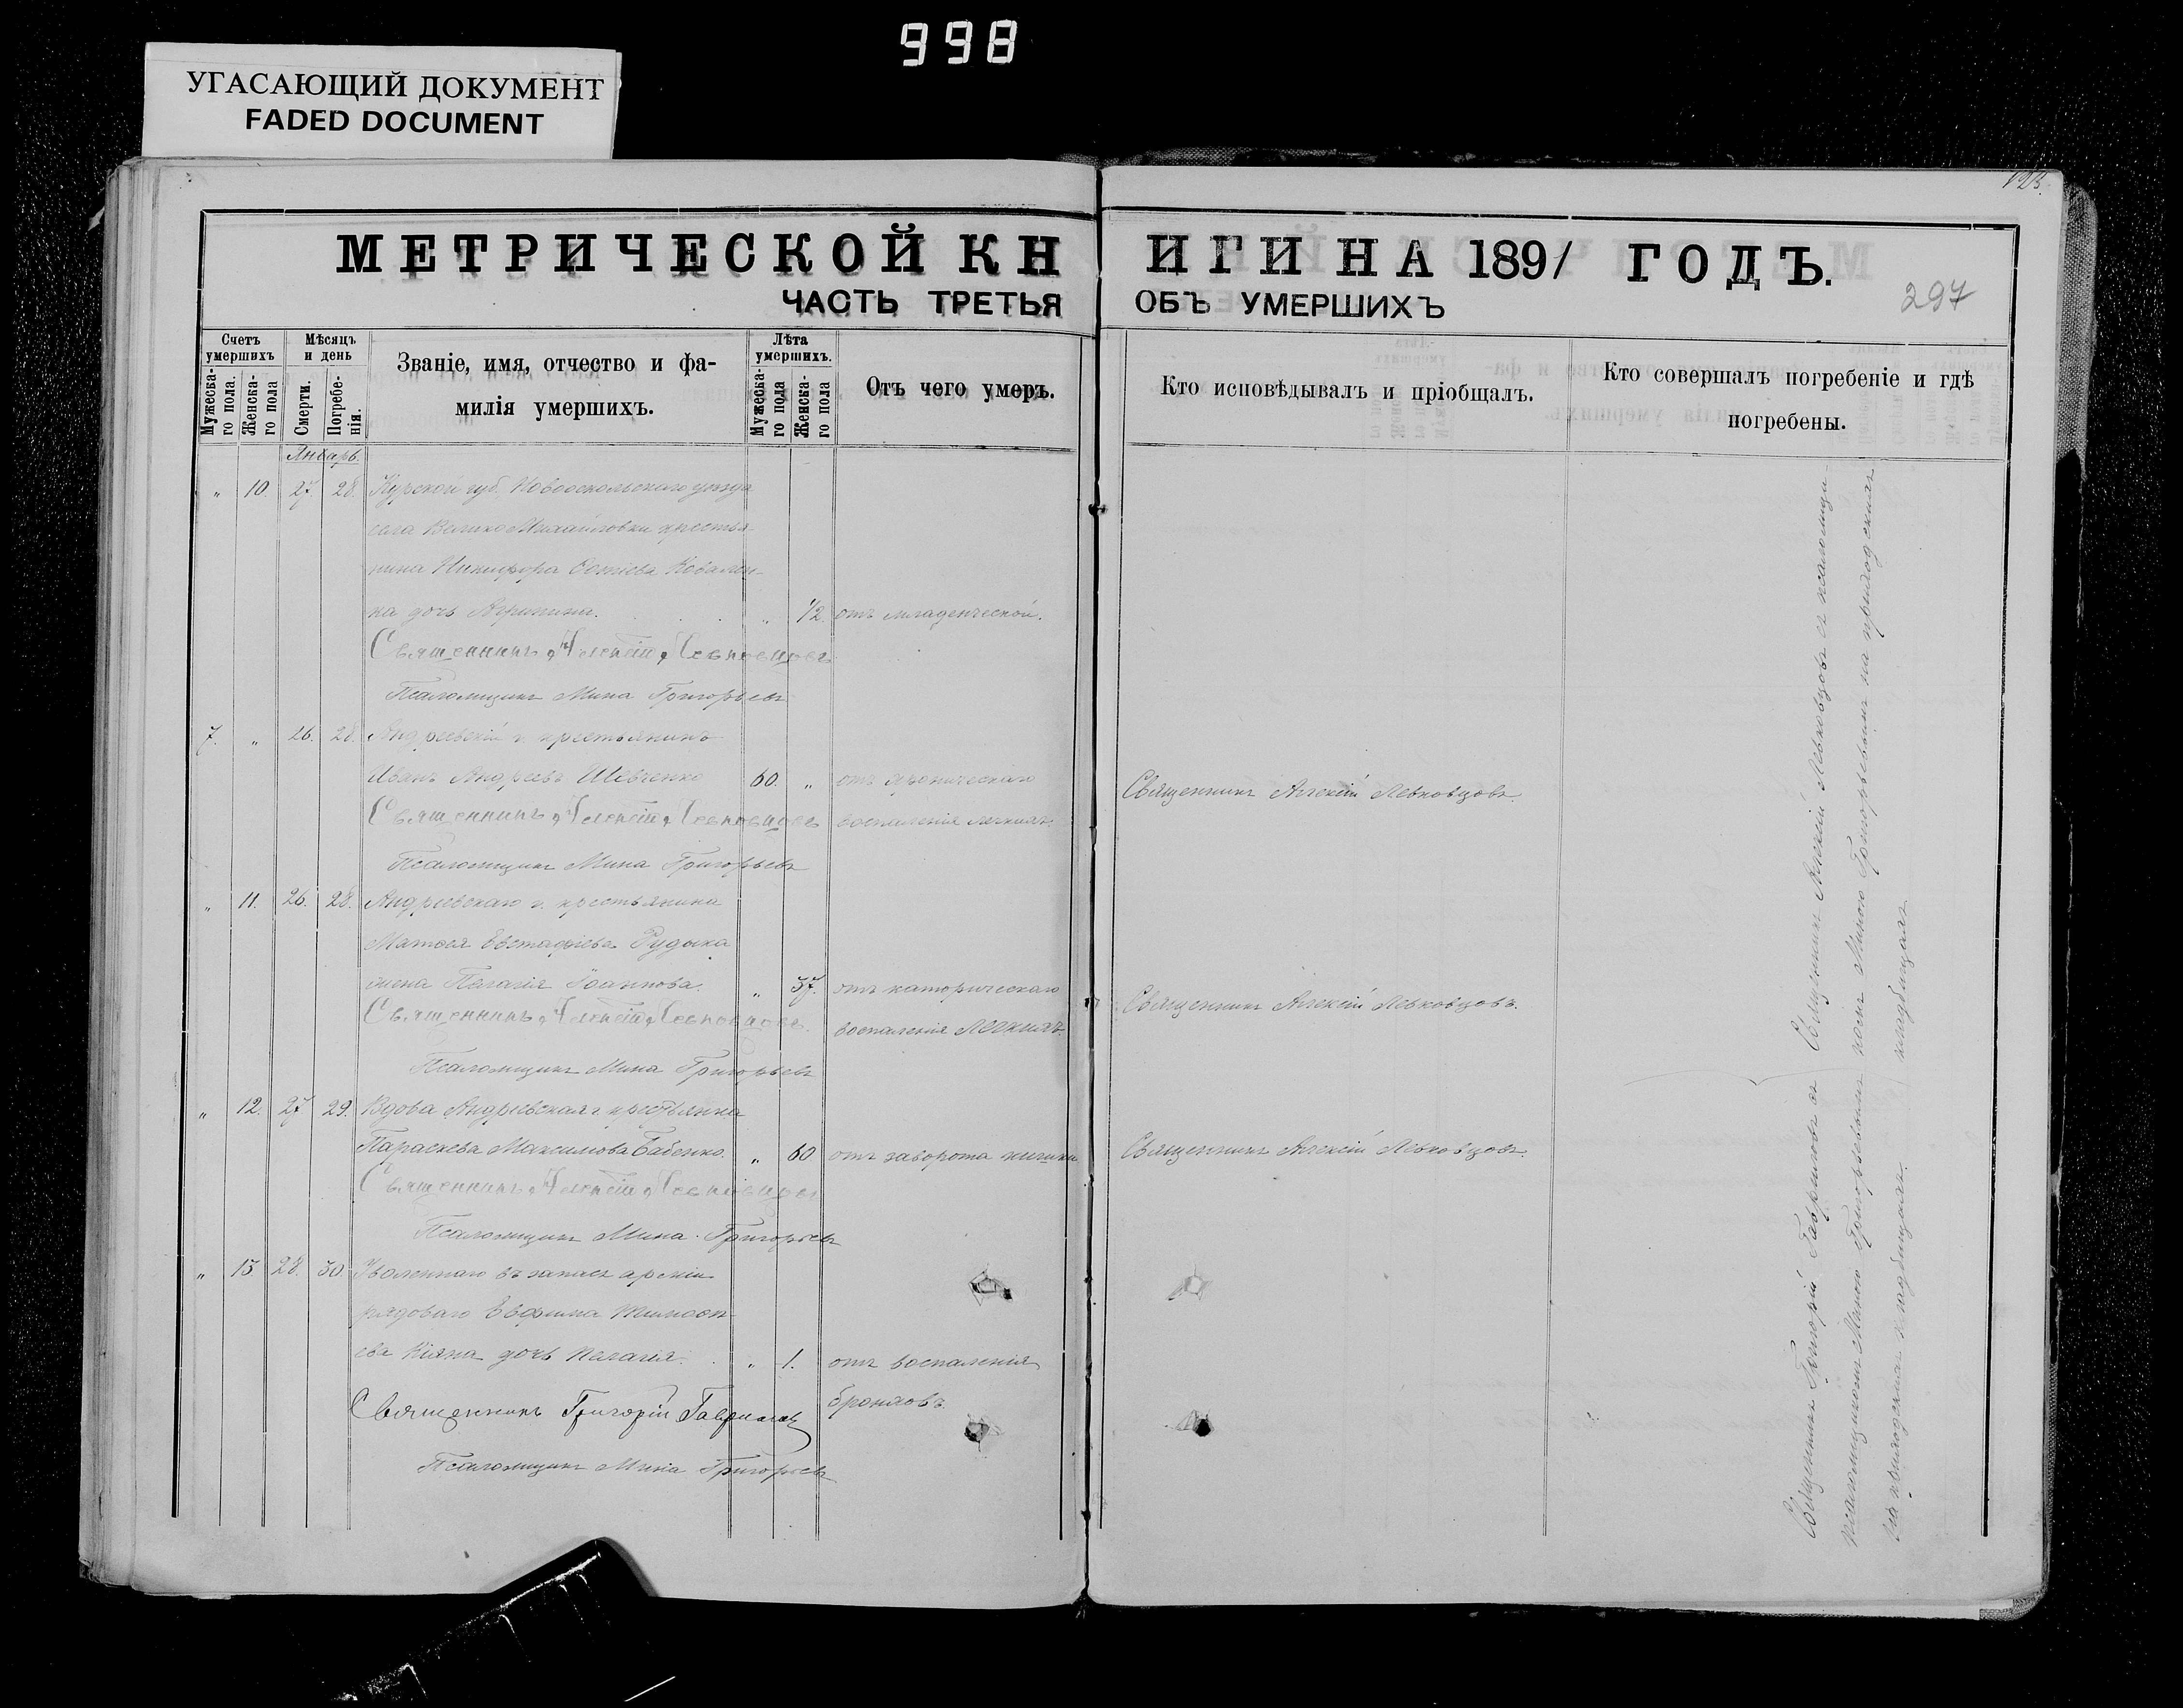 998
УГАСАЮЩИЙ ДОКУМЕНТ
FADED DOCUMENT
123.
МЕТРИЧЕСКОЙ КНИГИ НА 1891 ГОДЪ.
ЧАСТЬ ТРЕТЬЯ ОБЪ УМЕРШИХЪ
297
Счетъ умершихъ
Мужеска-го пола.
Женска-го пола
Мѣсяцъ и день
Смерти.
Погребе-нія.
Званіе, имя, отчество и фа-
милія умершихъ.
Лѣта умершихъ.
Мужеска-го пола
Женска-го пола
Отъ чего умеръ.
Кто исповѣдывалъ и пріобщалъ.
Кто совершалъ погребеніе и гдѣ
погребены.
Январь.
" 10. 27 28. Курской губ. Новооскольскаго уѣзда
села Велико Михайловки крестья-
нина Никифора Ковален-
ка дочь Агрипина. " 1/2 отъ младенческой.
Священникъ Алексій Левковцовъ
Псаломщикъ Мина Григорьевъ
7. " 26. 28. Андреевскій г. крестьянинъ
Иванъ Андреевъ Шевченко 60. " отъ хроническаго Священникъ Алексій Левковцовъ.
Священникъ Алексій Левковцовъ воспаленія легкихъ.
Псаломщикъ Мина Григорьевъ
" 11. 26. 28. Андреевскаго г. крестьянина
Матѳея Евстафіева Рудыка
жена Пелагія Іоаннова. " 37. отъ каторическаго Священникъ Алексій Левковцовъ.
Священникъ Алексій Левковцовъ. воспаленія легкихъ.
Псаломщикъ Мина Григорьевъ
" 12. 27 29. Вдова Андреевская г. крестьянка
Параскева Максимова Бабенко. " 60 отъ заворота кишки Священникъ Алексій Левковцовъ.
Священникъ Алексій Левковцовъ
Псаломщикъ Мина Григорьевъ
" 13. 28. 30. Уволеннаго въ запасъ арміи
рядоваго Евфима Тимоѳе-
ева Кіяна дочь Пелагія. " 1. отъ воспаленія
Священникъ Григорій Гавриловъ бронховъ.
Псаломщикъ Мина Григорьевъ
Священникъ Алексій Левковцовъ съ псаломщи-
комъ Миною Григорьевымъ на приходскихъ
кладбищахъ
Священникъ Григорій Гавриловъ съ
псаломщикомъ Миною Григорьевымъ
на приходскихъ кладбищахъ.